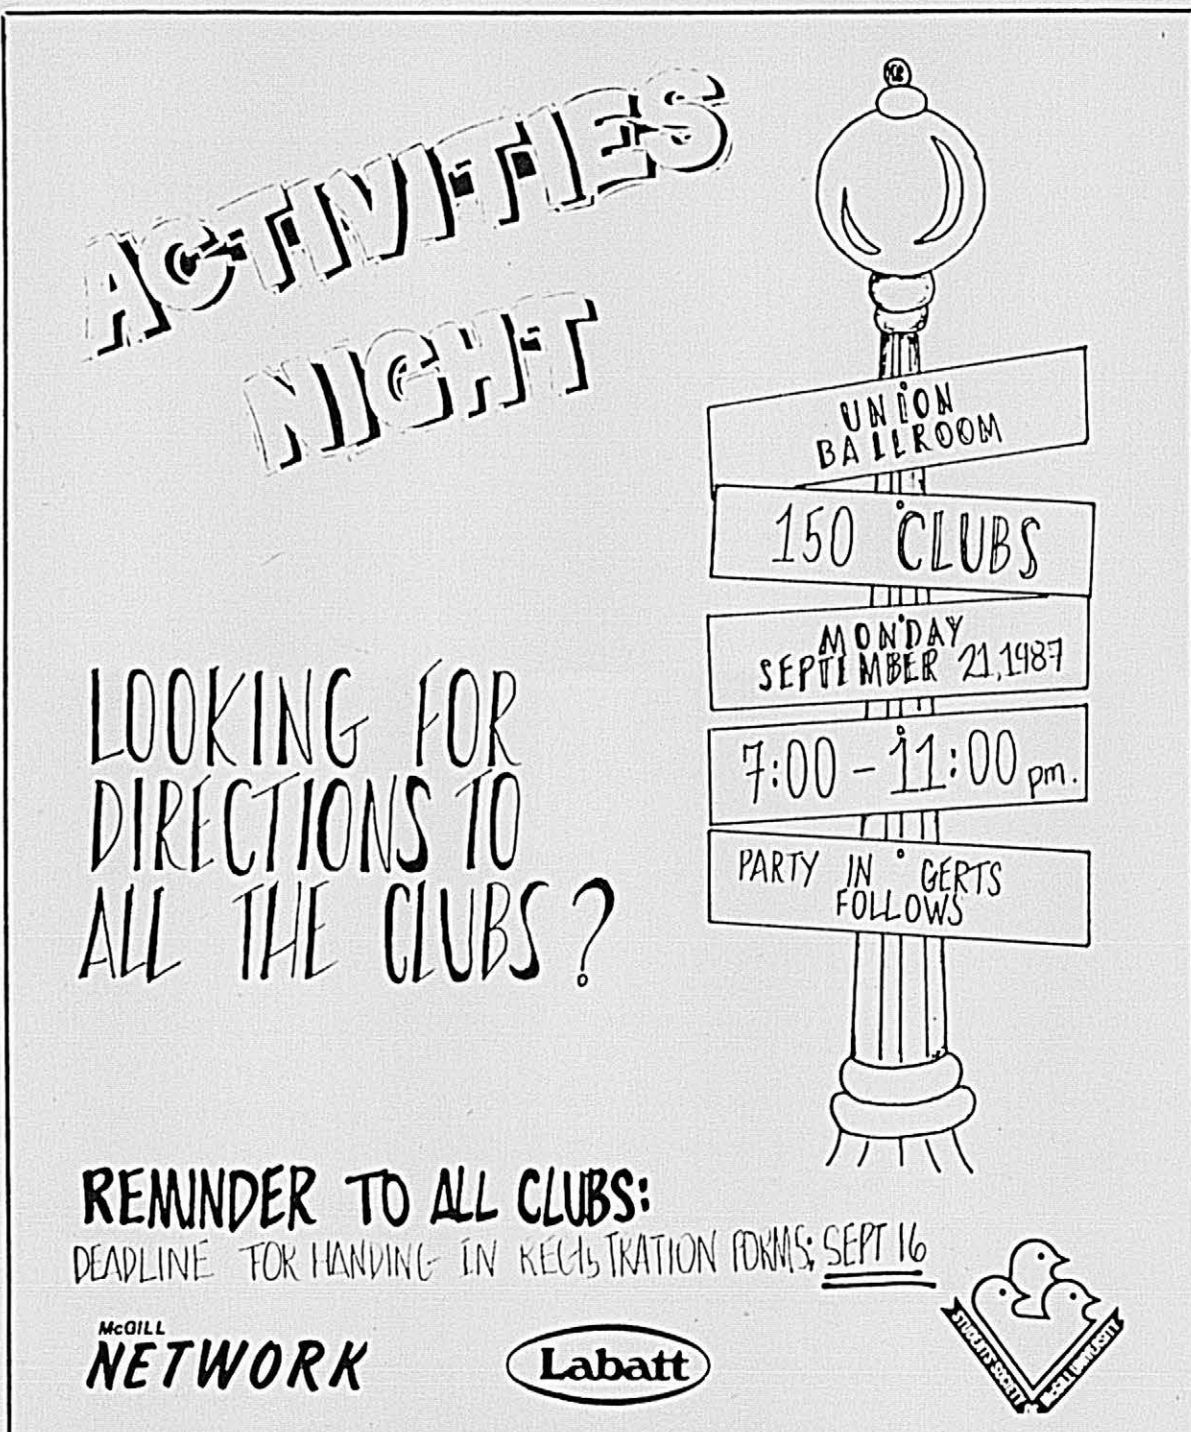 ACTIVITIES
NIGHT
UNION
BALLROOM
150 CLUBS
MONDAY
SEPTEMBER 21, 1987
7:00 - 11:00 pm.
PARTY IN GERTS
FOLLOWS
LOOKING FOR
DIRECTIONS TO
ALL THE CLUBS?
REMINDER TO ALL CLUBS:
DEADLINE FOR HANDING IN REGISTRATION FORMS: SEPT 16
McGILL
NETWORK
Labatt
STUDENTS' SOCIETY
McGILL UNIVERSITY